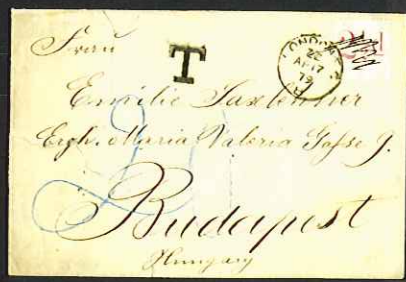 Frau
T
LONDON
AP 17
79
Emilie Saxlehner
Erzh. Maria Valeria Gasse 9.
Budapest
Hungary